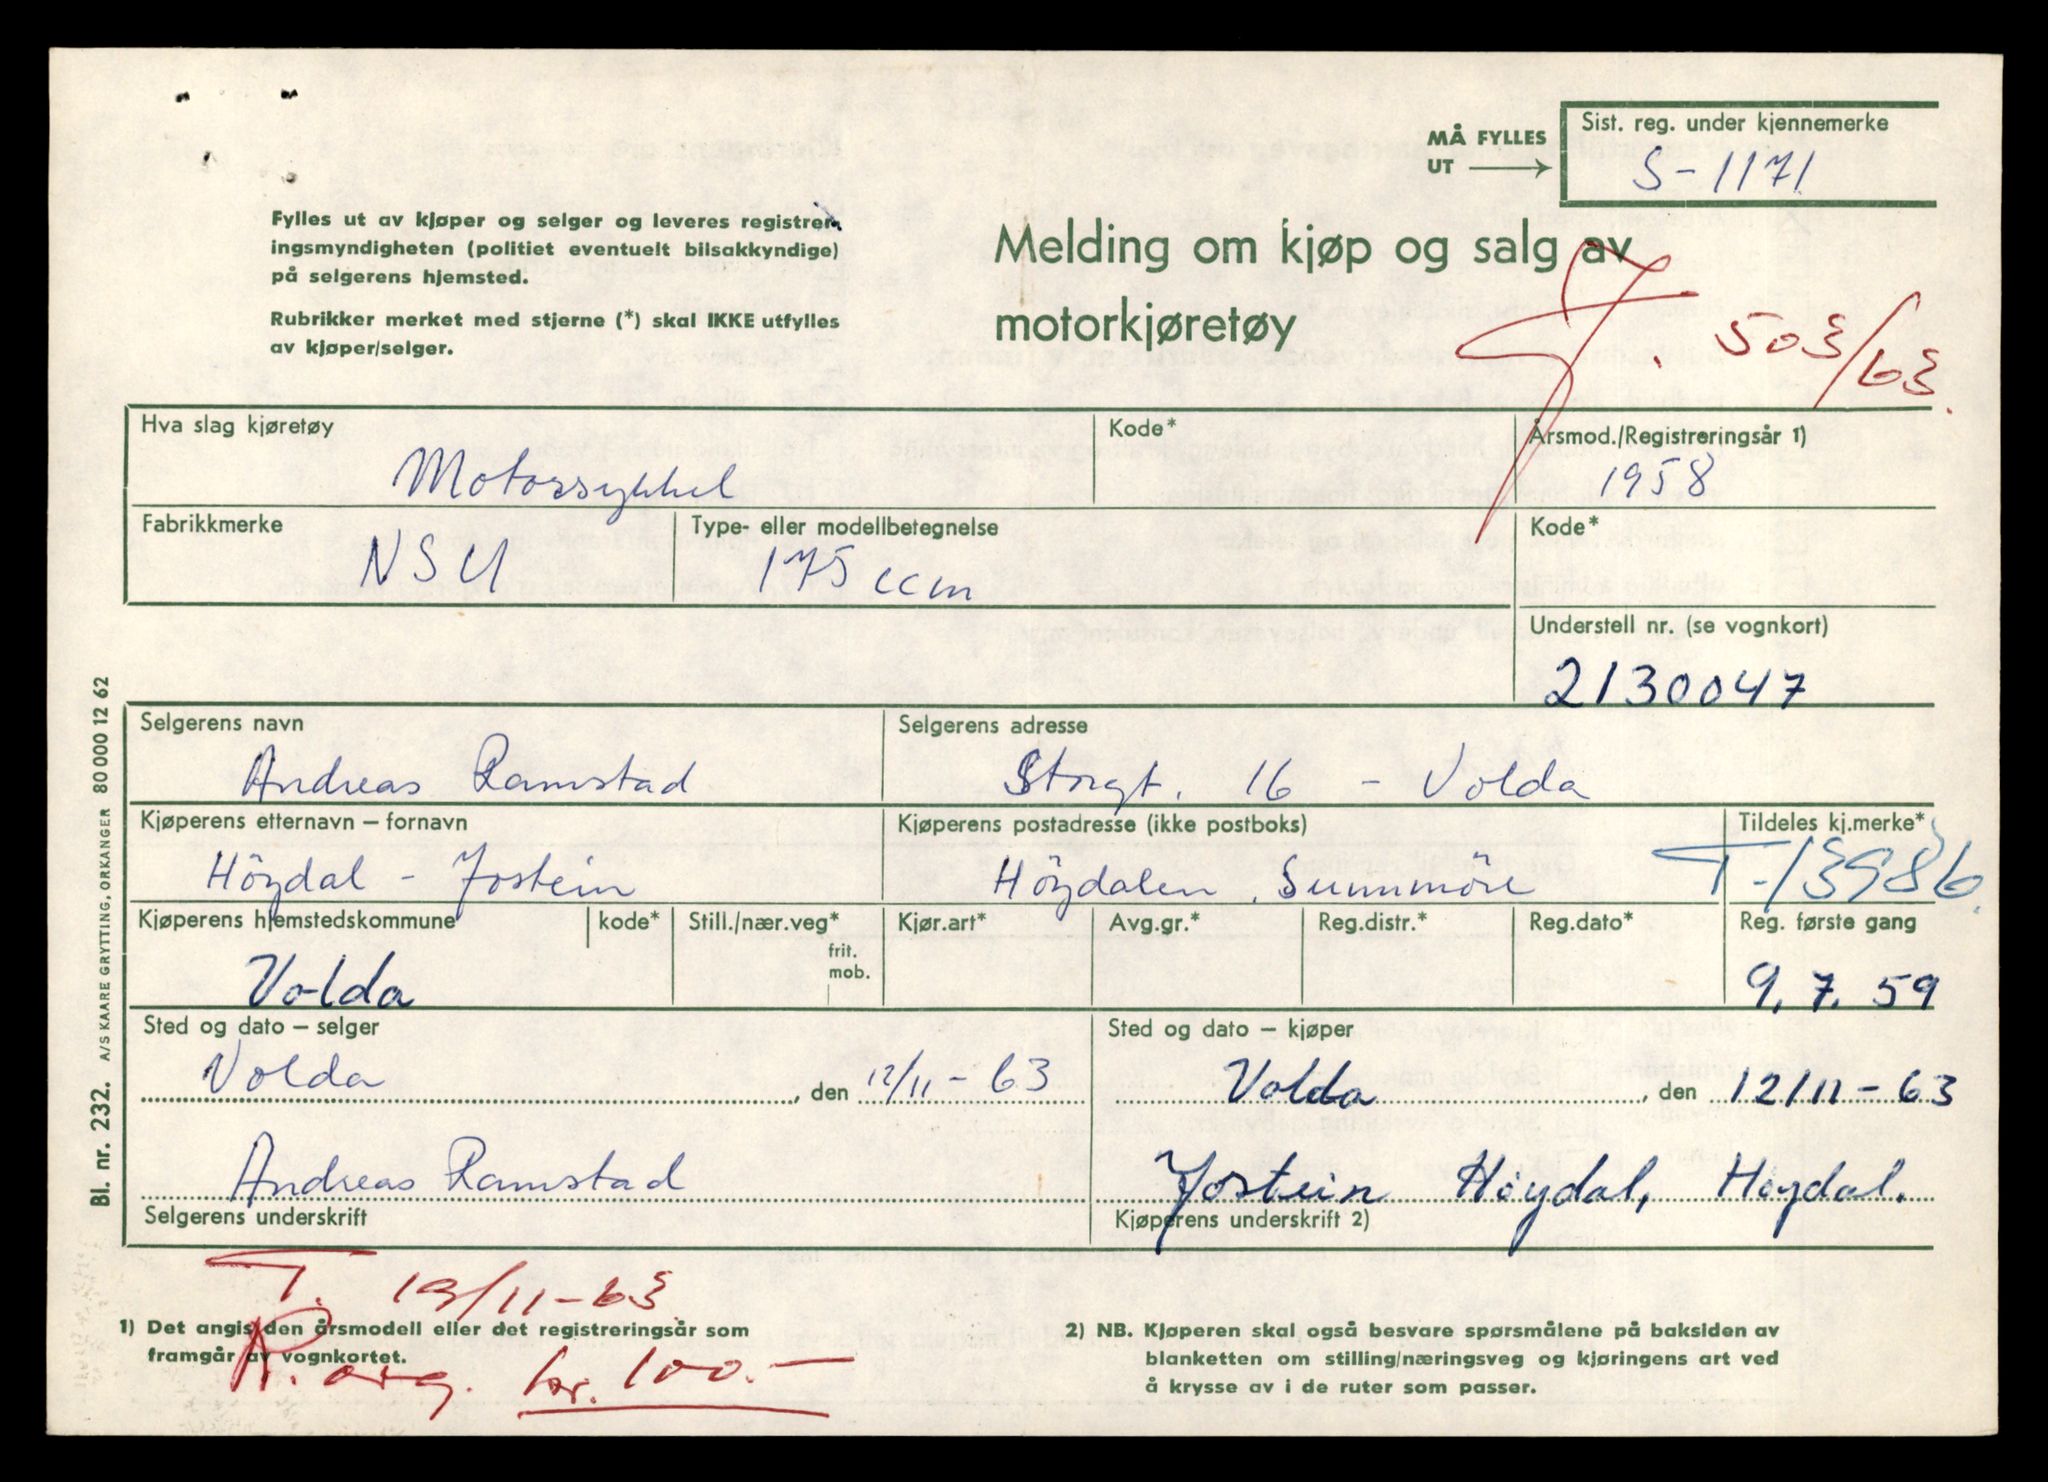 MÅ FYLLES
UT
Sist. reg. under kjennemerke
S-1171
Fylles ut av kjøper og selger og leveres registrer-
ingsmyndigheten (politiet eventuelt bilsakkyndige)
på selgerens hjemsted.
Rubrikker merket med stjerne (*) skal IKKE utfylles
av kjøper/selger.
Melding om kjøp og salg av
motorkjøretøy
J. 503/63.
Hva slag kjøretøy
Motorsykkel
Kode*
Årsmod./Registreringsår 1)
1958
Fabrikkmerke
NSU
Type- eller modellbetegnelse
175 ccm
Kode*
Understell nr. (se vognkort)
2130047
Selgerens navn
Andreas Ramstad
Selgerens adresse
Storgt. 16 - Volda
Kjøperens etternavn – fornavn
Höydal - Jostein
Kjøperens postadresse (ikke postboks)
Höydalen, Sunnmöre
Tildeles kj.merke*
T-13986.
Kjøperens hjemstedskommune
Volda
kode*
Still./nær.veg*
frit.
mob.
Kjør.art*
Avg.gr.*
Reg.distr.*
Reg.dato*
Reg. første gang
9.7.59
Sted og dato – selger
Volda, den 12/11-63
Sted og dato – kjøper
Volda, den 12/11-63
Andreas Ramstad
Selgerens underskrift
Jostein Höydal, Höydal.
Kjøperens underskrift 2)
T. 19/11-63
1) Det angis den årsmodell eller det registreringsår som
framgår av vognkortet.
R. org. kr. 100.-
2) NB. Kjøperen skal også besvare spørsmålene på baksiden av
blanketten om stilling/næringsveg og kjøringens art ved
å krysse av i de ruter som passer.
Bl. nr. 232. A/S KAARE GRYTTING, ORKANGER 80 000 12 62